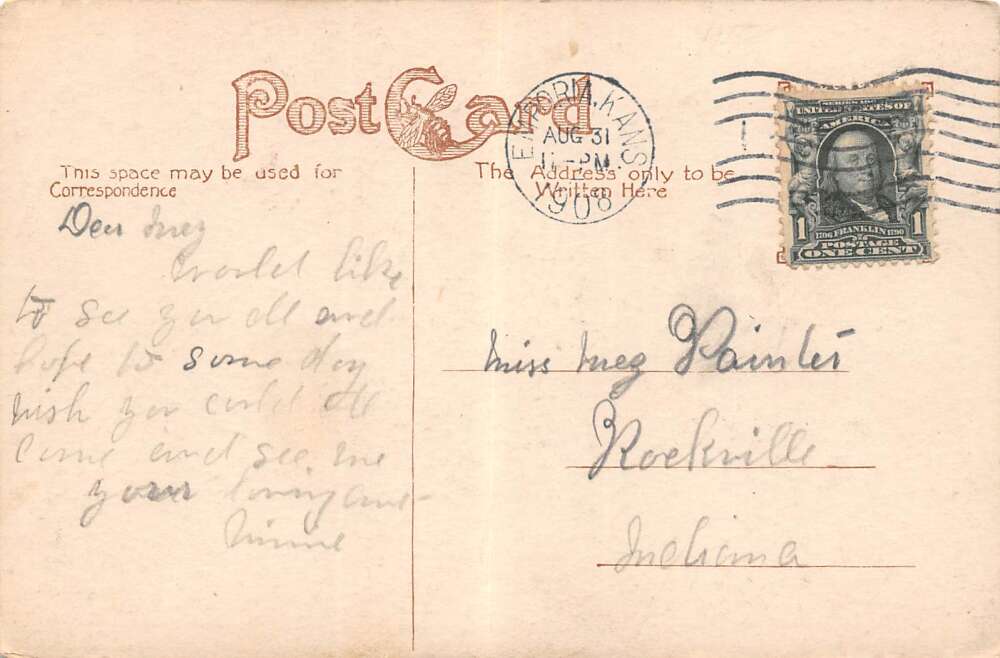 Post Card
This space may be used for
Correspondence
The Address only to be
Written Here
EMPORIA, KANS.
AUG 31
11-PM
1908
SERIES 1902
UNITED STATES OF
AMERICA
1 1
1706 FRANKLIN 1790
POSTAGE
ONE CENT
Dear Inez
would like
to see you all and
hope to some day
wish you could all
come and see me
your loving aunt
Minnie
Miss Inez Painter
Rockville
Indiana